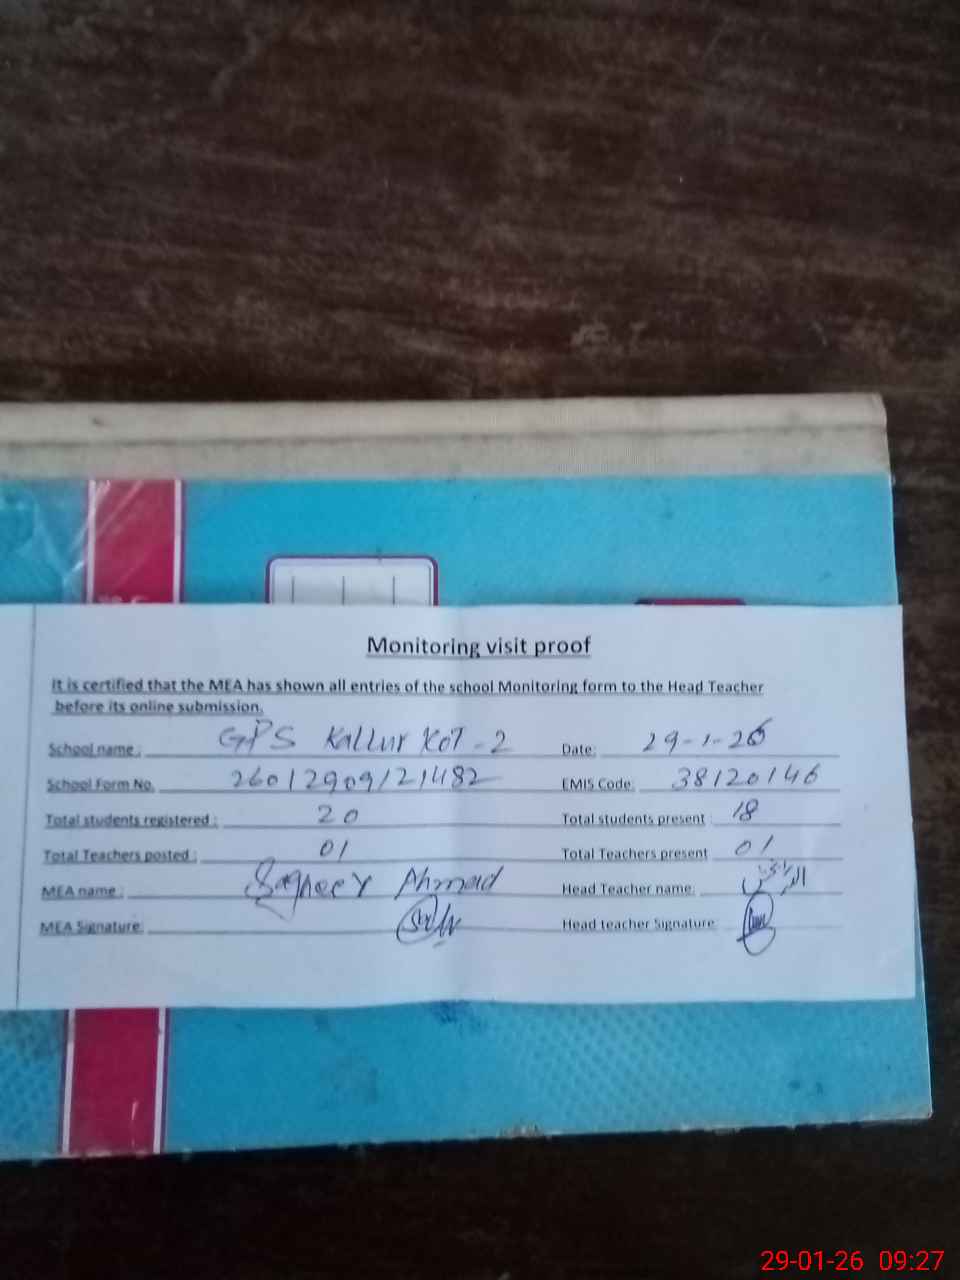 Monitoring visit proof
It is certified that the MEA has shown all entries of the school Monitoring form to the Head Teacher
before its online submission.
School name: GPS Kallur Kot-2 Date: 29-1-26
School Form No. 26012909121482 EMIS Code: 38120146
Total students registered: 20 Total students present 18
Total Teachers posted: 01 Total Teachers present 01
MEA name: Sagheer Ahmad Head Teacher name:
MEA Signature: Head teacher Signature
29-01-26 09:27